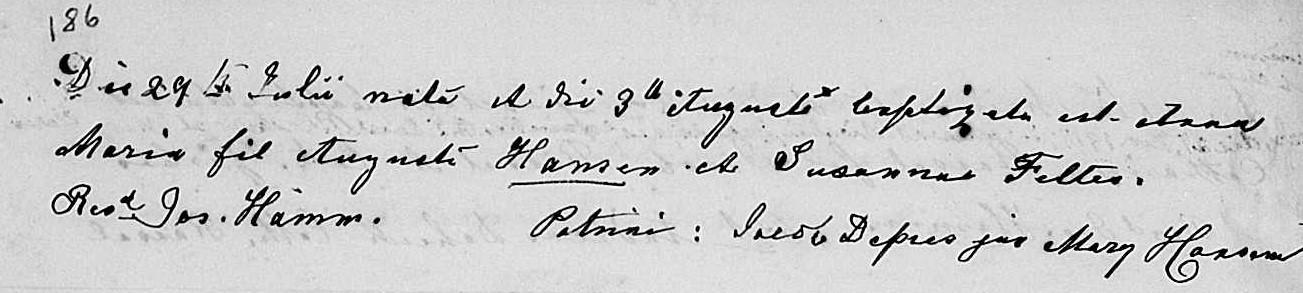 186
Die 29 th Julii nata et die 3 tt Augusti baptizata est Anna
Maria fil Augusti Hansen et Susanna Feltes.
Resd. Jos. Hamm. Patrini : Jacob Depres jun Mary Hansen